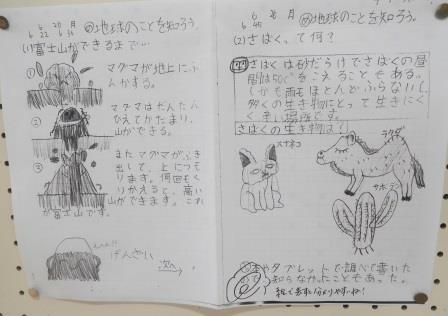 6 20 月
6 22
㋱地球のことを知ろう。
(1)富士山ができるまで…
①
マグマが地上にふ
んかする。
②
マグマはだんだん
ひえてかたまり、
山ができる。
③
またマグマがふき
出して、とにつも
ります。何回もく
りかえすと、高い
山ができます。これ
が富士山です。
げんざい
次へ→
6 月
㋱地球のことを知ろう。
(2)さばくって何?
さばくは砂だらけでさばくの昼
間は50℃をこえることもある。
しかも雨もほとんどふらないし、
多くの生き物にとって生きにく
く
場所です。
さばくの生き物は?
スナネコ
ラクダ
サボテン
本やタブレットで調べて書いた
ので知らなかったこともあった。
絵で表すと分かりやすいね!